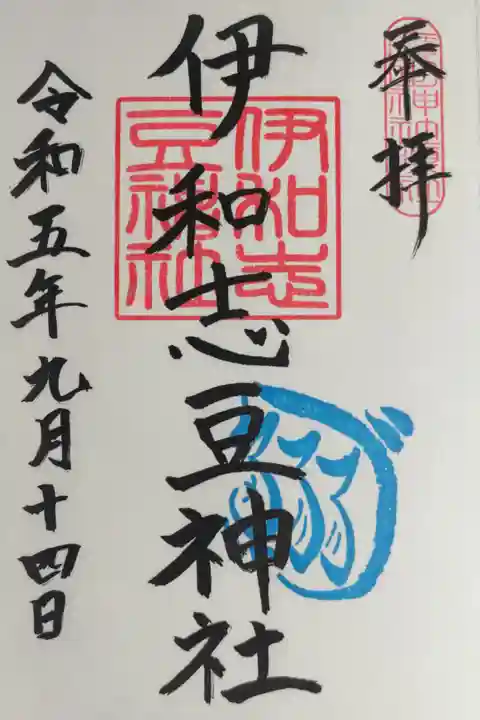 奉拝
伊和志豆神社
伊和志
豆神社
令和五年九月十四日